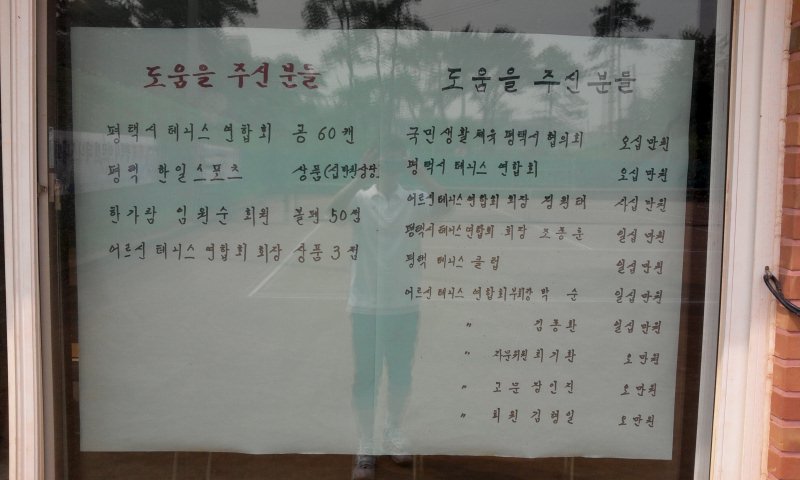 도움을 주신 분들
평택시 테니스 연합회 공 60캔
평택 한일스포츠 상품(십만원상당)
한가람 임원순 회원 볼펜 50
어르신 테니스 연합회 회장 상품 3
도움을 주신 분들
국민생활체육 평택시 협의회 오십만원
평택시 테니스 연합회 오십만원
어르신테니스연합회 회장 원태 사십만원
평택시테니스연합회 회장 조종훈 일십만원
평택 테니스 클럽 일십만원
어르신 테니스 연합회부회장 박 순 일십만원
〃 김동환 일십만원
〃 자문위원 최기환 오만원
〃 고문 장인진 오만원
〃 회원 김형일 오만원